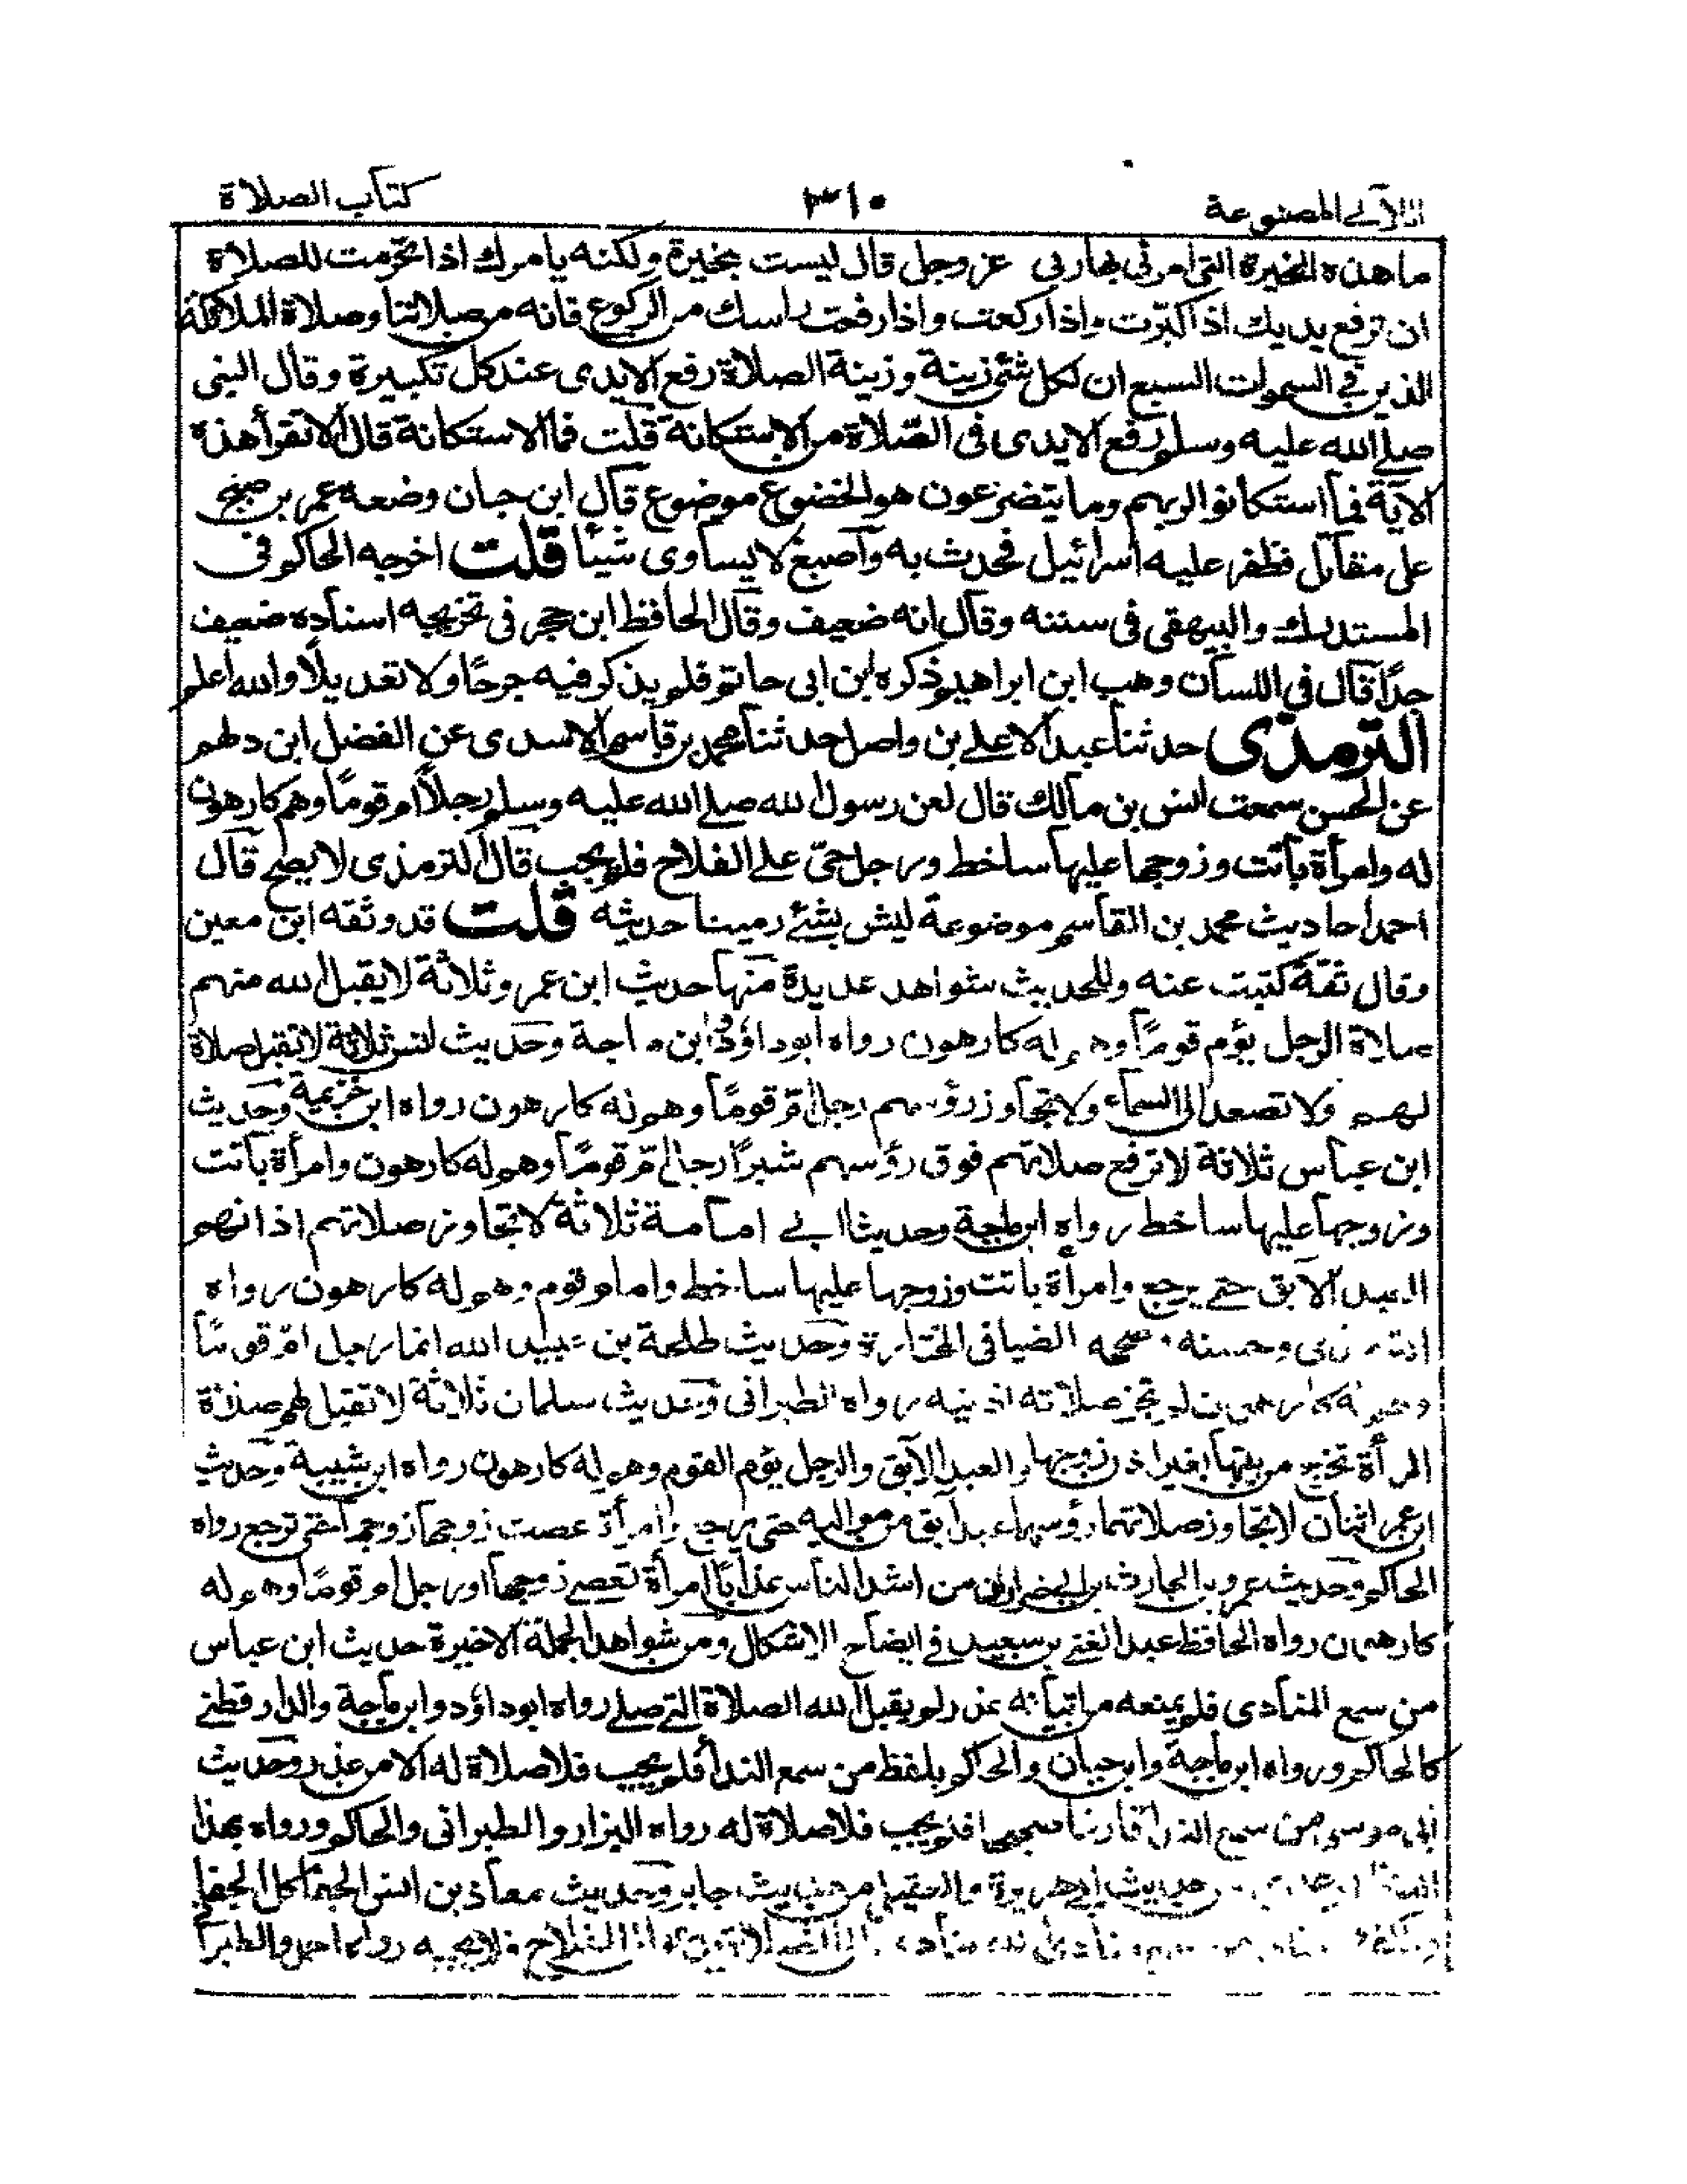 اللآلي المصنوعة ٣١٠ كتاب الصلاة
ما هذه النحيرة التي امرني بها ربي عز وجل قال ليست بنحيرة ولكنه يامرك اذا تحرمت للصلاة
ان ترفع يديك اذا كبّرت واذا ركعت واذا رفعت راسك من الركوع فانه من صلاتنا وصلاة الملائكة
الذين في السموات السبع ان لكل شئ زينة وزينة الصلاة رفع الايدى عند كل تكبيرة وقال النبي
صلے الله عليه وسلم رفع الايدى فى الصّلاة من الاستكانة قلت فما الاستكانة قال ألا تقرأ هذه
الآية فما استكانوا لربهم وما يتضرعون هو الخضوع موضوع قال ابن حبان وضعه عمر بن صبح
على مقاتل فظفر عليه اسرائيل فحدث به وأصبغ لا يساوى شيئا قلت اخرجه الحاكم فى
المستدرك والبيهقى فى سننه وقال انه ضعيف وقال الحافظ ابن حجر فى تخريجه اسناده ضعيف
جدًا قال فى اللسان وهب ابن ابراهيم ذكره ابن ابى حاتم فلم يذكر فيه جرحًا ولا تعديلًا والله اعلم
الترمذى حدثنا عبد الاعلے بن واصل حدثنا محمد بن قاسم الاسدى عن الفضل ابن دلهم
عن الحسن سمعت انس بن مالك قال لعن رسول الله صلے الله عليه وسلم رجلًا ام قومًا وهم كارهون
له وامرأة باتت وزوجها عليها ساخط ورجل حىّ علے الفلاح فلم يجب قال الترمذى لا يصح قال
احمد احاديث محمد بن القاسم موضوعة ليس بشئ رمينا حديثه قلت قد وثقه ابن معين
وقال ثقة كتبت عنه وللحديث شواهد عديدة منها حديث ابن عمر وثلاثة لا يقبل الله منهم
صلاة الرجل يؤم قومًا وهم له كارهون رواه ابو داؤد وابن ماجة وحديث انس ثلاثة لا تقبل صلاة
لهم ولا تصعد الى السماء ولا تجاوز رؤسهم رجل امّ قومًا وهم له كارهون رواه ابن خزيمة وحديث
ابن عباس ثلاثة لا ترفع صلاتهم فوق رؤسهم شبرًا رجل امّ قومًا وهم له كارهون وامرأة باتت
وزوجها عليها ساخط رواه ابن ماجة وحديث ابے امامة ثلاثة لا تجاوز صلاتهم اذانهم
العبد الآبق حتے يرجع وامرأة باتت وزوجها عليها ساخط وامام قوم وهم له كارهون رواه
الترمذى وحسنه وصححه الضيا فى المختارة وحديث طلحة بن عبيد الله ايما رجل امّ قومًا
وهم له كارهون لم تجز صلاته اذنيه رواه الطبرانى وحديث سلمان ثلاثة لا تقبل لهم صلاة
المرأة تخرج من بيتها بغير اذن زوجها والعبد الآبق والرجل يؤم القوم وهم له كارهون رواه ابن شيبة وحديث
ابن عمر اثنان لا تجاوز صلاتهما رؤسهما عبد آبق من مواليه حتى يرجع وامرأة عصت زوجها حتى ترجع رواه
الحاكم وحديث عمرو بن الحارث من اشد الناس عذابًا امرأة تعصے زوجها ورجل ام قومًا وهم له
كارهون رواه الحافظ عبد الغنے بن سعيد فے ايضاح الاشكال ومن شواهد الجملة الاخيرة حديث ابن عباس
من سمع المنادى فلم يمنعه من اتيانه عذر لم يقبل الله الصلاة التے صلے رواه ابو داؤد وابن ماجة والدارقطنے
كالحاكم ورواه ابن ماجة وابن حبان والحاكم بلفظ من سمع الندأ فلم يجيب فلا صلاة له الا من عذر وحديث
ابى موسى من سمع الندا فارغا صحيحا فلم يجيب فلا صلاة له رواه البزار والطبرانى والحاكم ورواه بهذا
حديث ابے هريرة والعقيلى من حديث جابر وحديث معاذ بن انس الجفا كل الجفا
والكفر الى الفلاح فلا يجيبه رواه احمد والطبرا